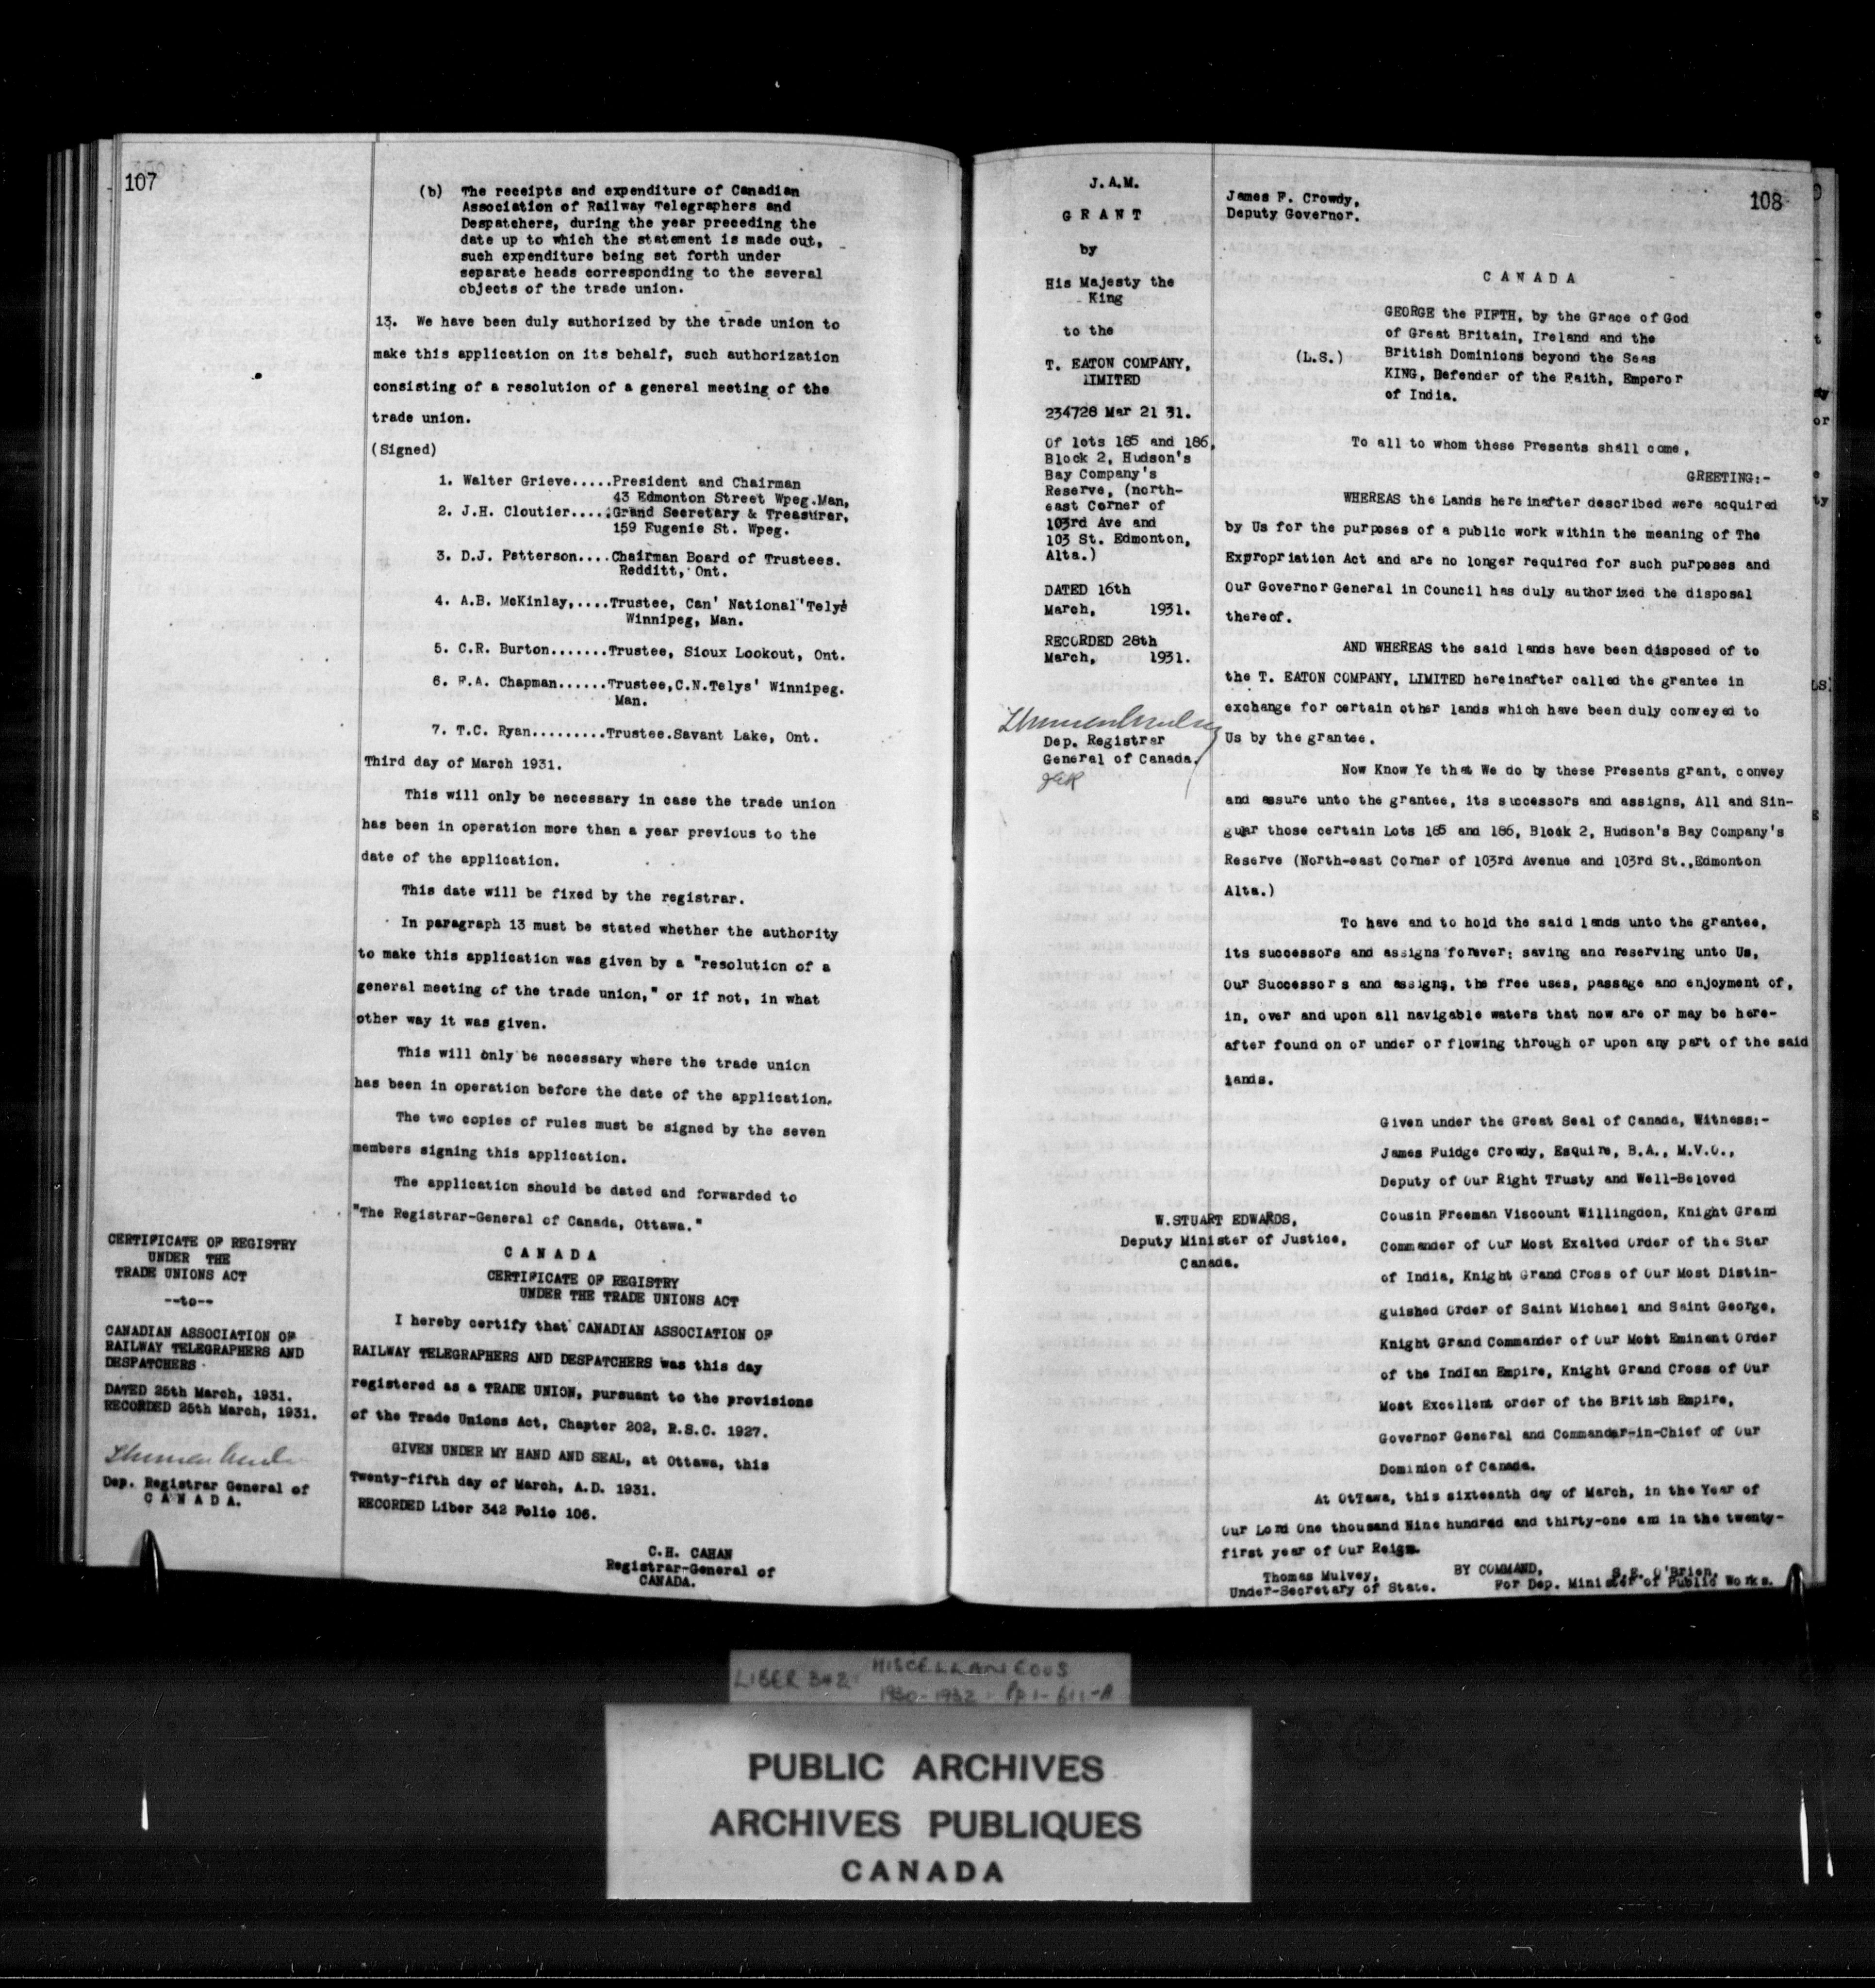 107
(b) The receipts and expenditure of Canadian
Association of Railway Telegraphers and
Despatchers, during the year preceding the
date up to which the statement is made out,
such expenditure being set forth under
separate heads corresponding to the several
objects of the trade union.
13. We have been duly authorized by the trade union to
make this application on its behalf, such authorization
consisting of a resolution of a general meeting of the
trade union.
(Signed)
1. Walter Grieve.....President and Chairman
43 Edmonton Street Wpeg.Man,
2. J.H. Cloutier.....Grand Secretary & Treasurer,
159 Eugenie St. Wpeg.
3. D.J. Patterson....Chairman Board of Trustees.
Redditt, Ont.
4. A.B. McKinlay,....Trustee, Can' National Telys
Winnipeg, Man.
5. C.R. Burton.......Trustee, Sioux Lookout, Ont.
6. F.A. Chapman......Trustee,C.N.Telys' Winnipeg.
Man.
7. T.C. Ryan.........Trustee.Savant Lake, Ont.
Third day of March 1931.
This will only be necessary in case the trade union
has been in operation more than a year previous to the
date of the application.
This date will be fixed by the registrar.
In paragraph 13 must be stated whether the authority
to make this application was given by a "resolution of a
general meeting of the trade union," or if not, in what
other way it was given.
This will only be necessary where the trade union
has been in operation before the date of the application.
The two copies of rules must be signed by the seven
members signing this application.
The application should be dated and forwarded to
"The Registrar-General of Canada, Ottawa."
CERTIFICATE OF REGISTRY
UNDER THE
TRADE UNIONS ACT
--to--
CANADIAN ASSOCIATION OF
RAILWAY TELEGRAPHERS AND
DESPATCHERS
DATED 25th March, 1931.
RECORDED 25th March, 1931.
Dep. Registrar General of
C A N A D A.
C A N A D A
CERTIFICATE OF REGISTRY
UNDER THE TRADE UNIONS ACT
I hereby certify that CANADIAN ASSOCIATION OF
RAILWAY TELEGRAPHERS AND DESPATCHERS was this day
registered as a TRADE UNION, pursuant to the provisions
of the Trade Unions Act, Chapter 202, R.S.C. 1927.
GIVEN UNDER MY HAND AND SEAL, at Ottawa, this
Twenty-fifth day of March, A.D. 1931.
RECORDED Liber 342 Folio 106.
C.H. CAHAN
Registrar-General of
CANADA.
J.A.M.
G R A N T
by
His Majesty the
King
to the
T. EATON COMPANY,
LIMITED
234728 Mar 21 31.
Of lots 185 and 186,
Block 2, Hudson's
Bay Company's
Reserve, (north-
east Corner of
103rd Ave and
103 St. Edmonton,
Alta.)
DATED 16th
March, 1931.
RECORDED 28th
March, 1931.
Dep. Registrar
General of Canada.
108
James F. Crowdy,
Deputy Governor.
C A N A D A
GEORGE the FIFTH, by the Grace of God
of Great Britain, Ireland and the
(L.S.) British Dominions beyond the Seas
KING, Defender of the Faith, Emperor
of India.
To all to whom these Presents shall come,
GREETING:-
WHEREAS the Lands hereinafter described were acquired
by Us for the purposes of a public work within the meaning of The
Expropriation Act and are no longer required for such purposes and
Our Governor General in Council has duly authorized the disposal
thereof.
AND WHEREAS the said lands have been disposed of to
the T. EATON COMPANY, LIMITED hereinafter called the grantee in
exchange for certain other lands which have been duly conveyed to
Us by the grantee.
Now Know Ye that We do by these Presents grant, convey
and assure unto the grantee, its successors and assigns, All and Sin-
gular those certain Lots 185 and 186, Block 2, Hudson's Bay Company's
Reserve (North-east Corner of 103rd Avenue and 103rd St.,Edmonton
Alta.)
To have and to hold the said lands unto the grantee,
its successors and assigns forever; saving and reserving unto Us,
Our Successors and assigns, the free uses, passage and enjoyment of,
in, over and upon all navigable waters that now are or may be here-
after found on or under or flowing through or upon any part of the said
lands.
W.STUART EDWARDS,
Deputy Minister of Justice,
Canada.
Given under the Great Seal of Canada, Witness:-
James Fuidge Crowdy, Esquire, B.A., M.V.O.,
Deputy of Our Right Trusty and Well-Beloved
Cousin Freeman Viscount Willingdon, Knight Grand
Commander of Our Most Exalted Order of the Star
of India, Knight Grand Cross of Our Most Distin-
guished Order of Saint Michael and Saint George,
Knight Grand Commander of Our Most Eminent Order
of the Indian Empire, Knight Grand Cross of Our
Most Excellent order of the British Empire,
Governor General and Commandar-in-Chief of Our
Dominion of Canada.
At OtTawa, this sixteenth day of March, in the Year of
Our Lord One thousand Nine hundred and thirty-one and in the twenty-
first year of Our Reign.
BY COMMAND,
Thomas Mulvey,
Under-Secretary of State.
S.E. O'Brien,
For Dep. Minister of Public Works.
LIBER 342 MISCELLANEOUS
1930-1932 Pp 1-611-A
PUBLIC ARCHIVES
ARCHIVES PUBLIQUES
CANADA